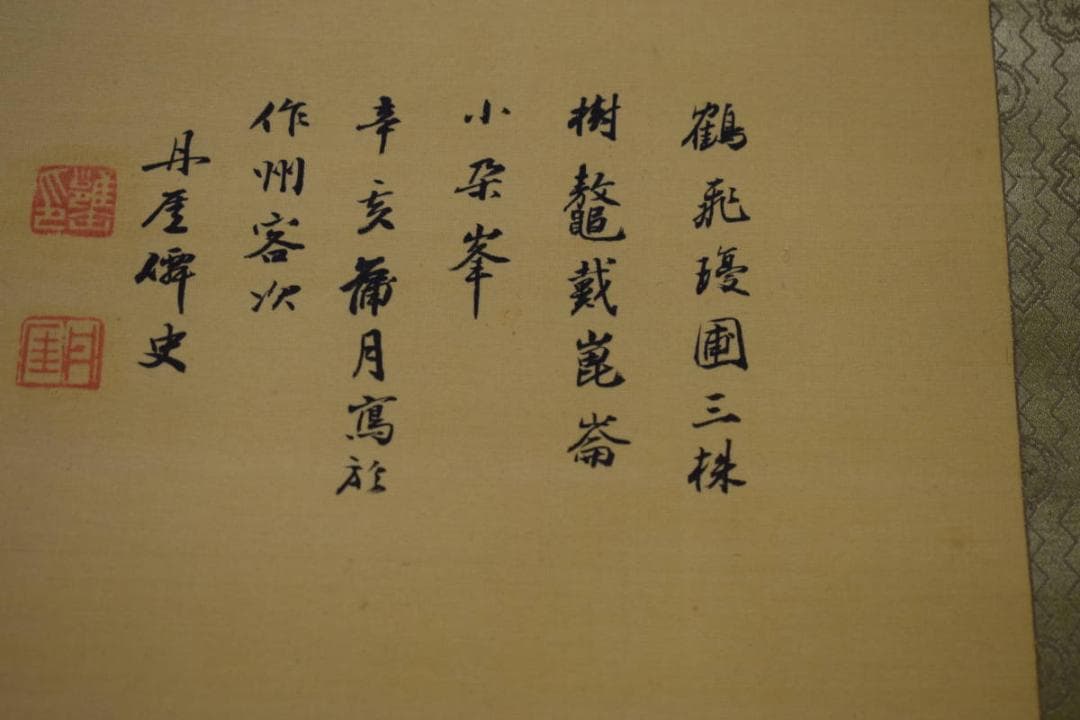 鶴飛瓊圃三株
樹鼇戴崑崙
小朵峯
辛亥蒲月寫於
作州客次
丹崖僊史
丹崖